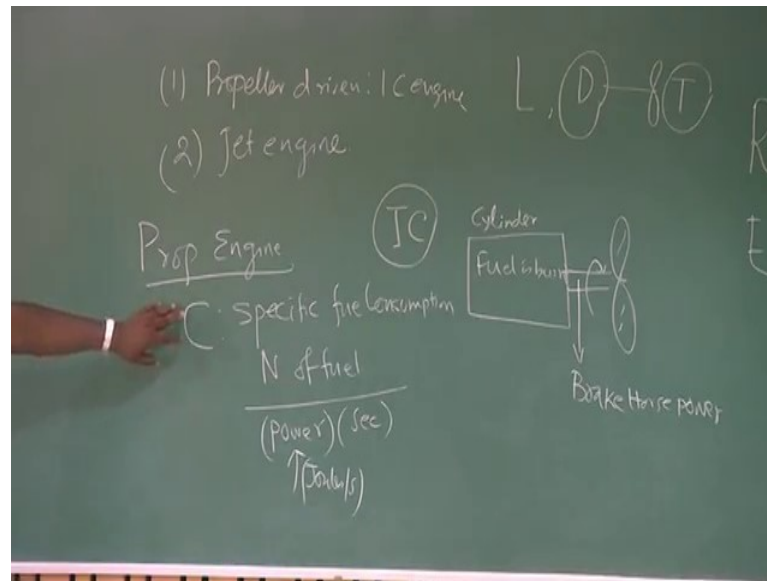 (1) Propeller driven: IC engine
L, D T
(2) Jet engine
R
E
Prop Engine
IC
Cylinder
Fuel is burn
C: Specific fuel Consumption
N of fuel
(Power) (Sec)
(Joules/s)
Brake Horse power